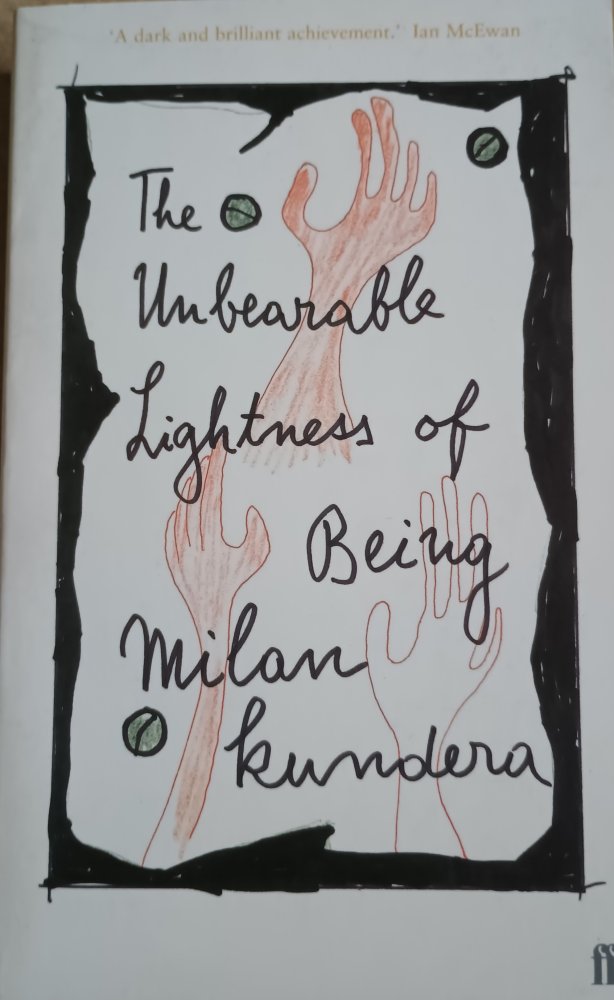 'A dark and brilliant achievement.' Ian McEwan
The
Unbearable
Lightness of
Being
Milan
kundera
ff